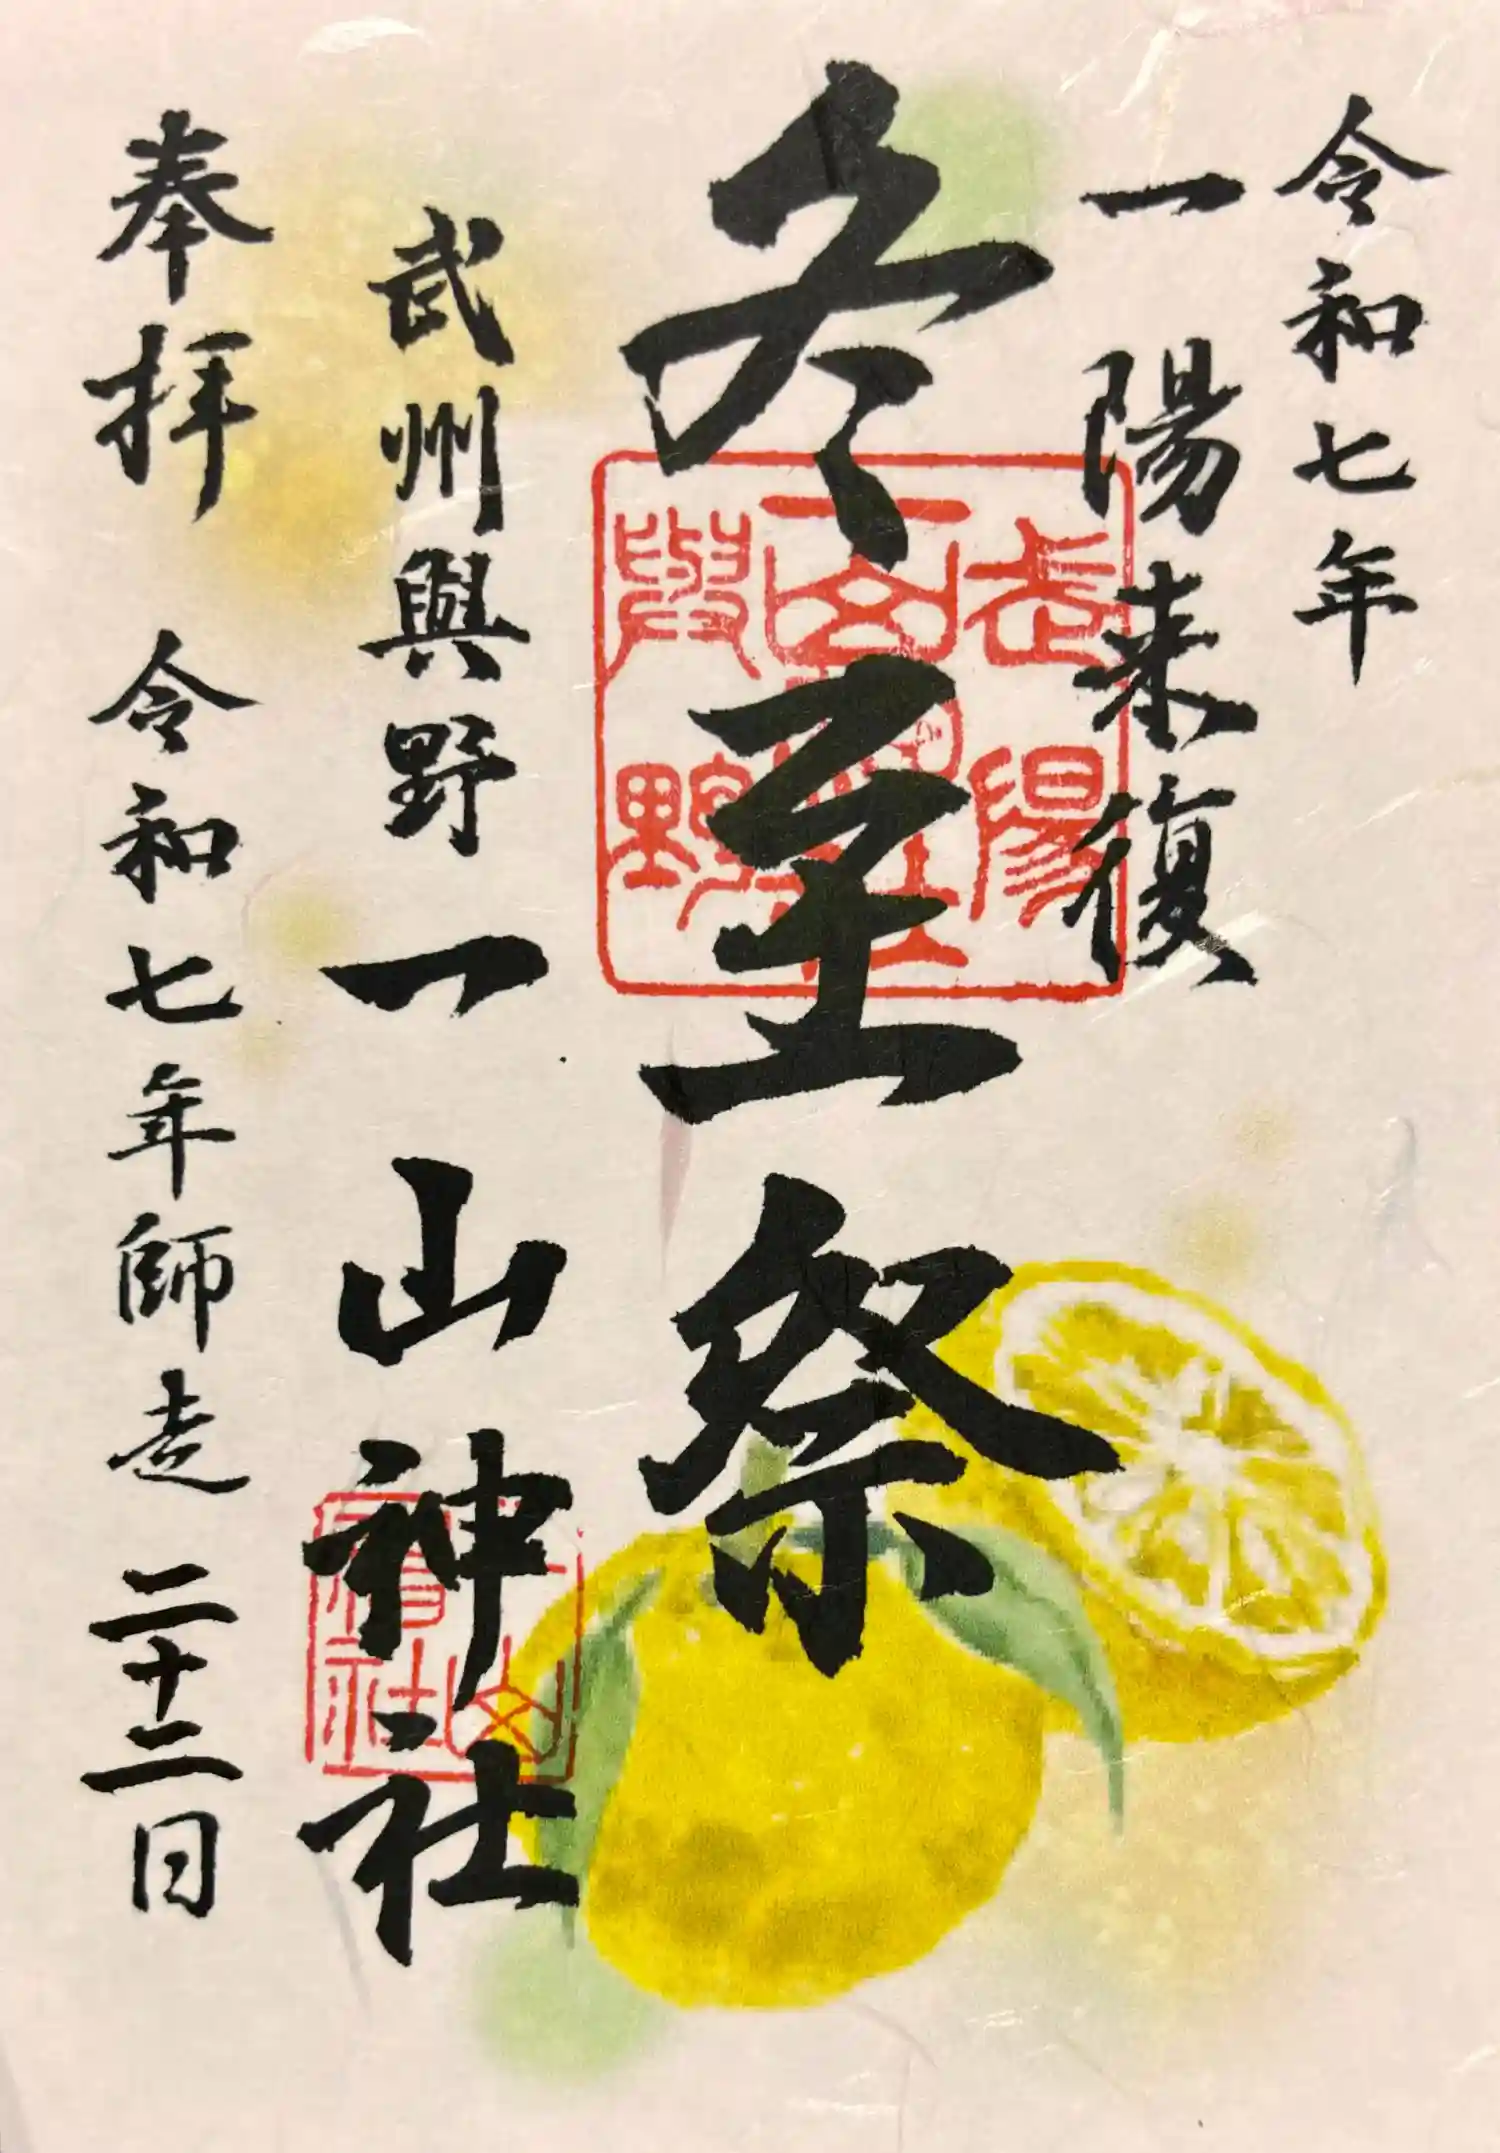 令和七年
一陽来復
冬至祭
武州與野一山神社
奉拝 令和七年師走二十二日